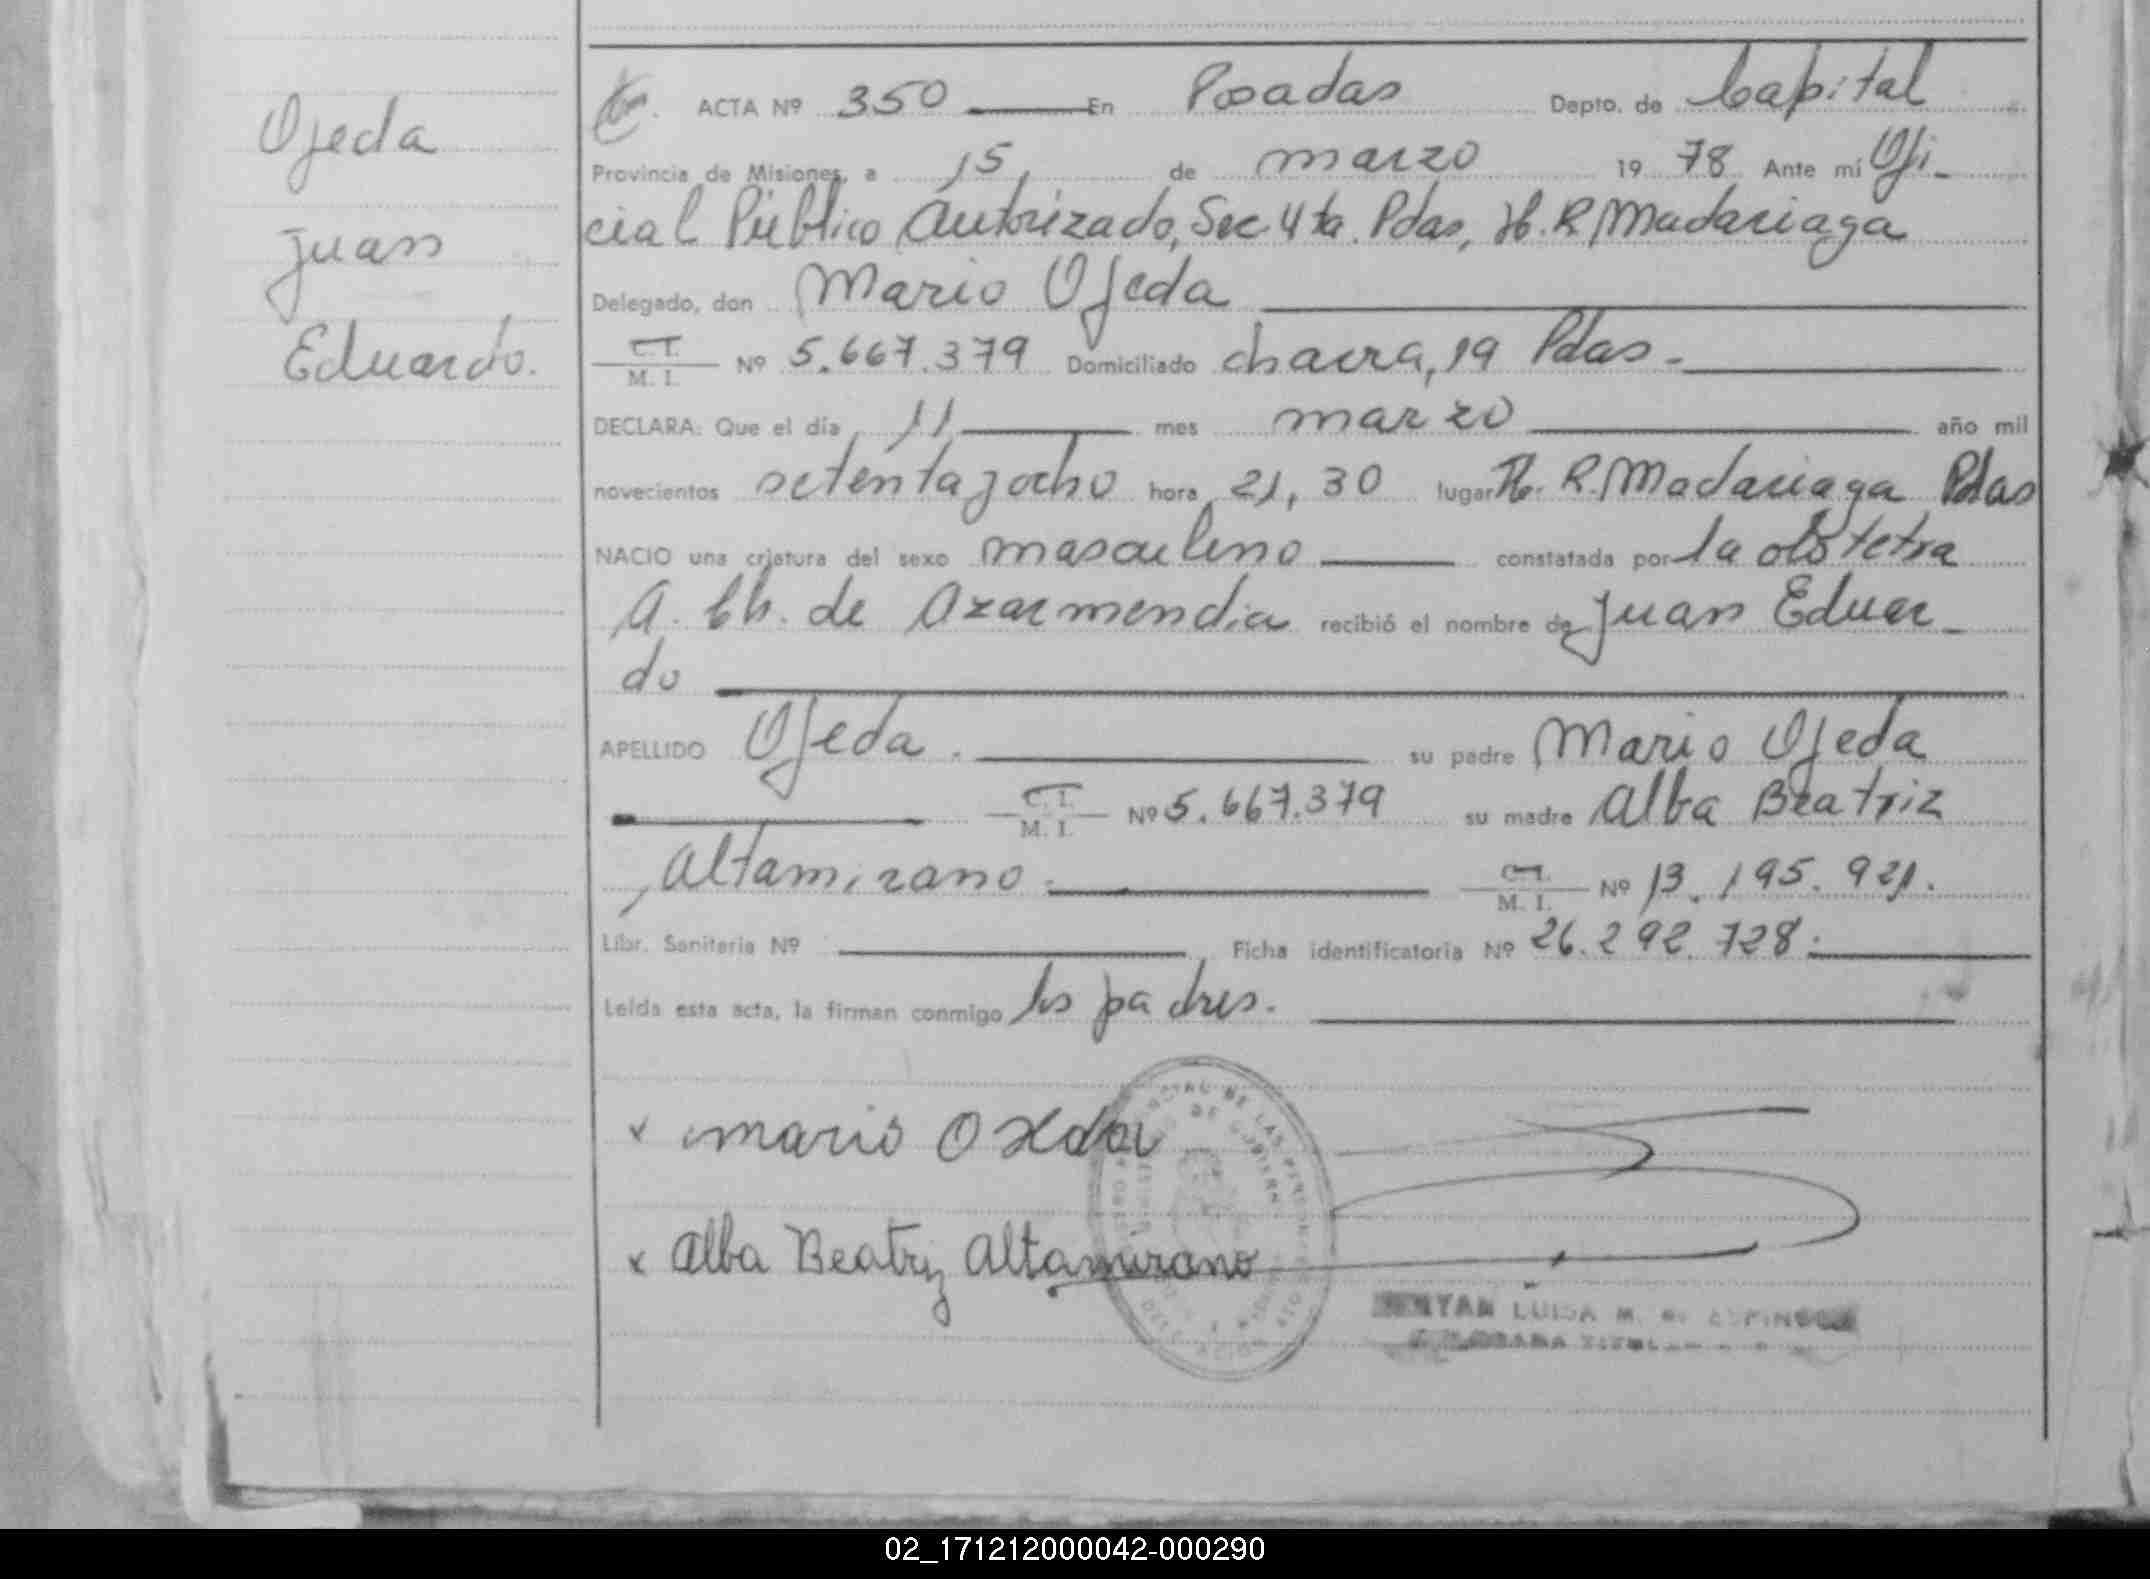 Ojeda
Juan
Eduardo.
ACTA Nº 350 En Posadas Depto. de Capital
Provincia de Misiones, a 15, de marzo 19 78 Ante mi Ofi-
cial Público Autorizado, Sec. 4ta. Pdas, H. R. Madariaga
Delegado, don Mario Ojeda
C. I.
M. I. Nº 5.667.379 Domiciliado chacra, 19 Pdas.
DECLARA: Que el día 11 mes marzo año mil
novecientos setentayocho hora 21,30 lugar H. R. Madariaga Pdas
NACIO una criatura del sexo masculino constatada por la obstetra
A. Ch. de Azarmendia recibió el nombre de Juan Eduar-
do
APELLIDO Ojeda. su padre Mario Ojeda
C. I.
M. I. Nº 5.667.379 su madre Alba Beatriz
Altamirano. C. I.
M. I. Nº 13.195.921.
Libr. Sanitaria Nº Ficha identificatoria Nº 26.292.728.
Leída esta acta, la firman conmigo los padres.
x mario
x Alba Beatriz Altamirano
LUISA M.
02_171212000042-000290